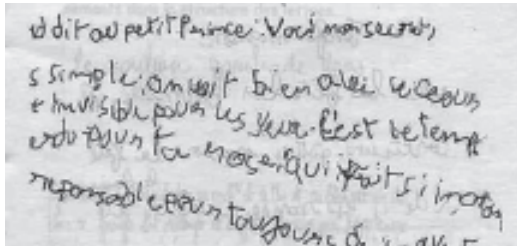 d dit au petit Prince: Voici mon secret,
s simple: on voit bien avec le coeur
t invisible pour les yeux. C'est le temp
erdu pour ta rose qui fait si impor
responsable pour toujours de